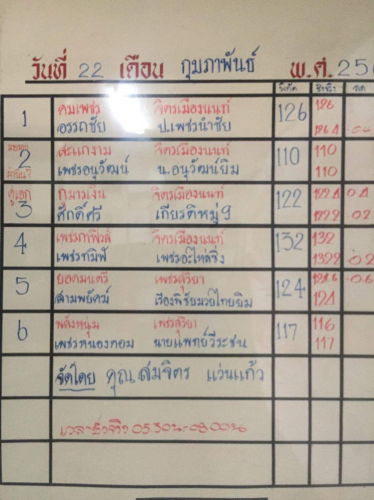 วันที่ 22 เดือน กุมภาพันธ์ พ.ศ. 25
พิกัด ชั่งจริง
1 คมเพชร จิตรเมืองนนท์ 126 126
อรรถชัย ป.เพชรนำชัย 126.4
2 สะแกงาม จิตรเมืองนนท์ 110 110
เพชรอนุวัฒน์ น.อนุวัฒน์ยิม 110
คู่เอก
3 กุมารเงิน จิตรเมืองนนท์ 122 122.4 0.4
ศักดิ์ศรี เกียรติหมู่9 122.2 02
4 จิตรเมืองนนท์ 132 132
เพชรอะไหล่ซิ่ง 132.2 0.2
5 ยอดมนตรี เพชรสุริยา 124 124.6 0.6
สามพยัคฆ์ เรืองพิชัยมวยไทยยิม 124
6 พลังหนุ่ม เพชรสุริยา 117 116
เพชรหนองคอม นายแพทย์วีระชน 117
จัดโดย คุณสมจิตร แว่นแก้ว
เวลาชั่งจริง 05.30น-08.00น